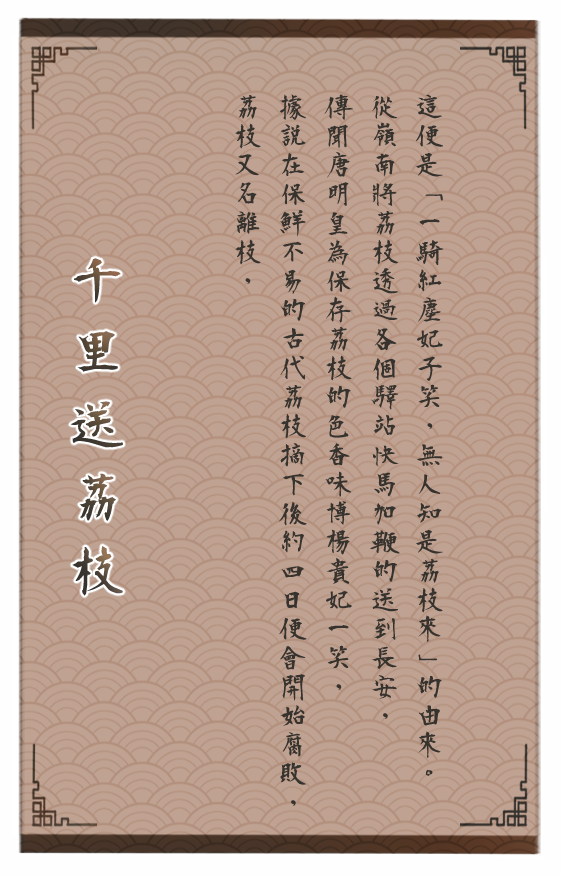 千里送荔枝
荔枝又名離枝，
據說在保鮮不易的古代荔枝摘下後約四日便會開始腐敗，
傳聞唐明皇為保存荔枝的色香味博楊貴妃一笑，
從嶺南將荔枝透過各個驛站快馬加鞭的送到長安，
這便是「一騎紅塵妃子笑，無人知是荔枝來」的由來。